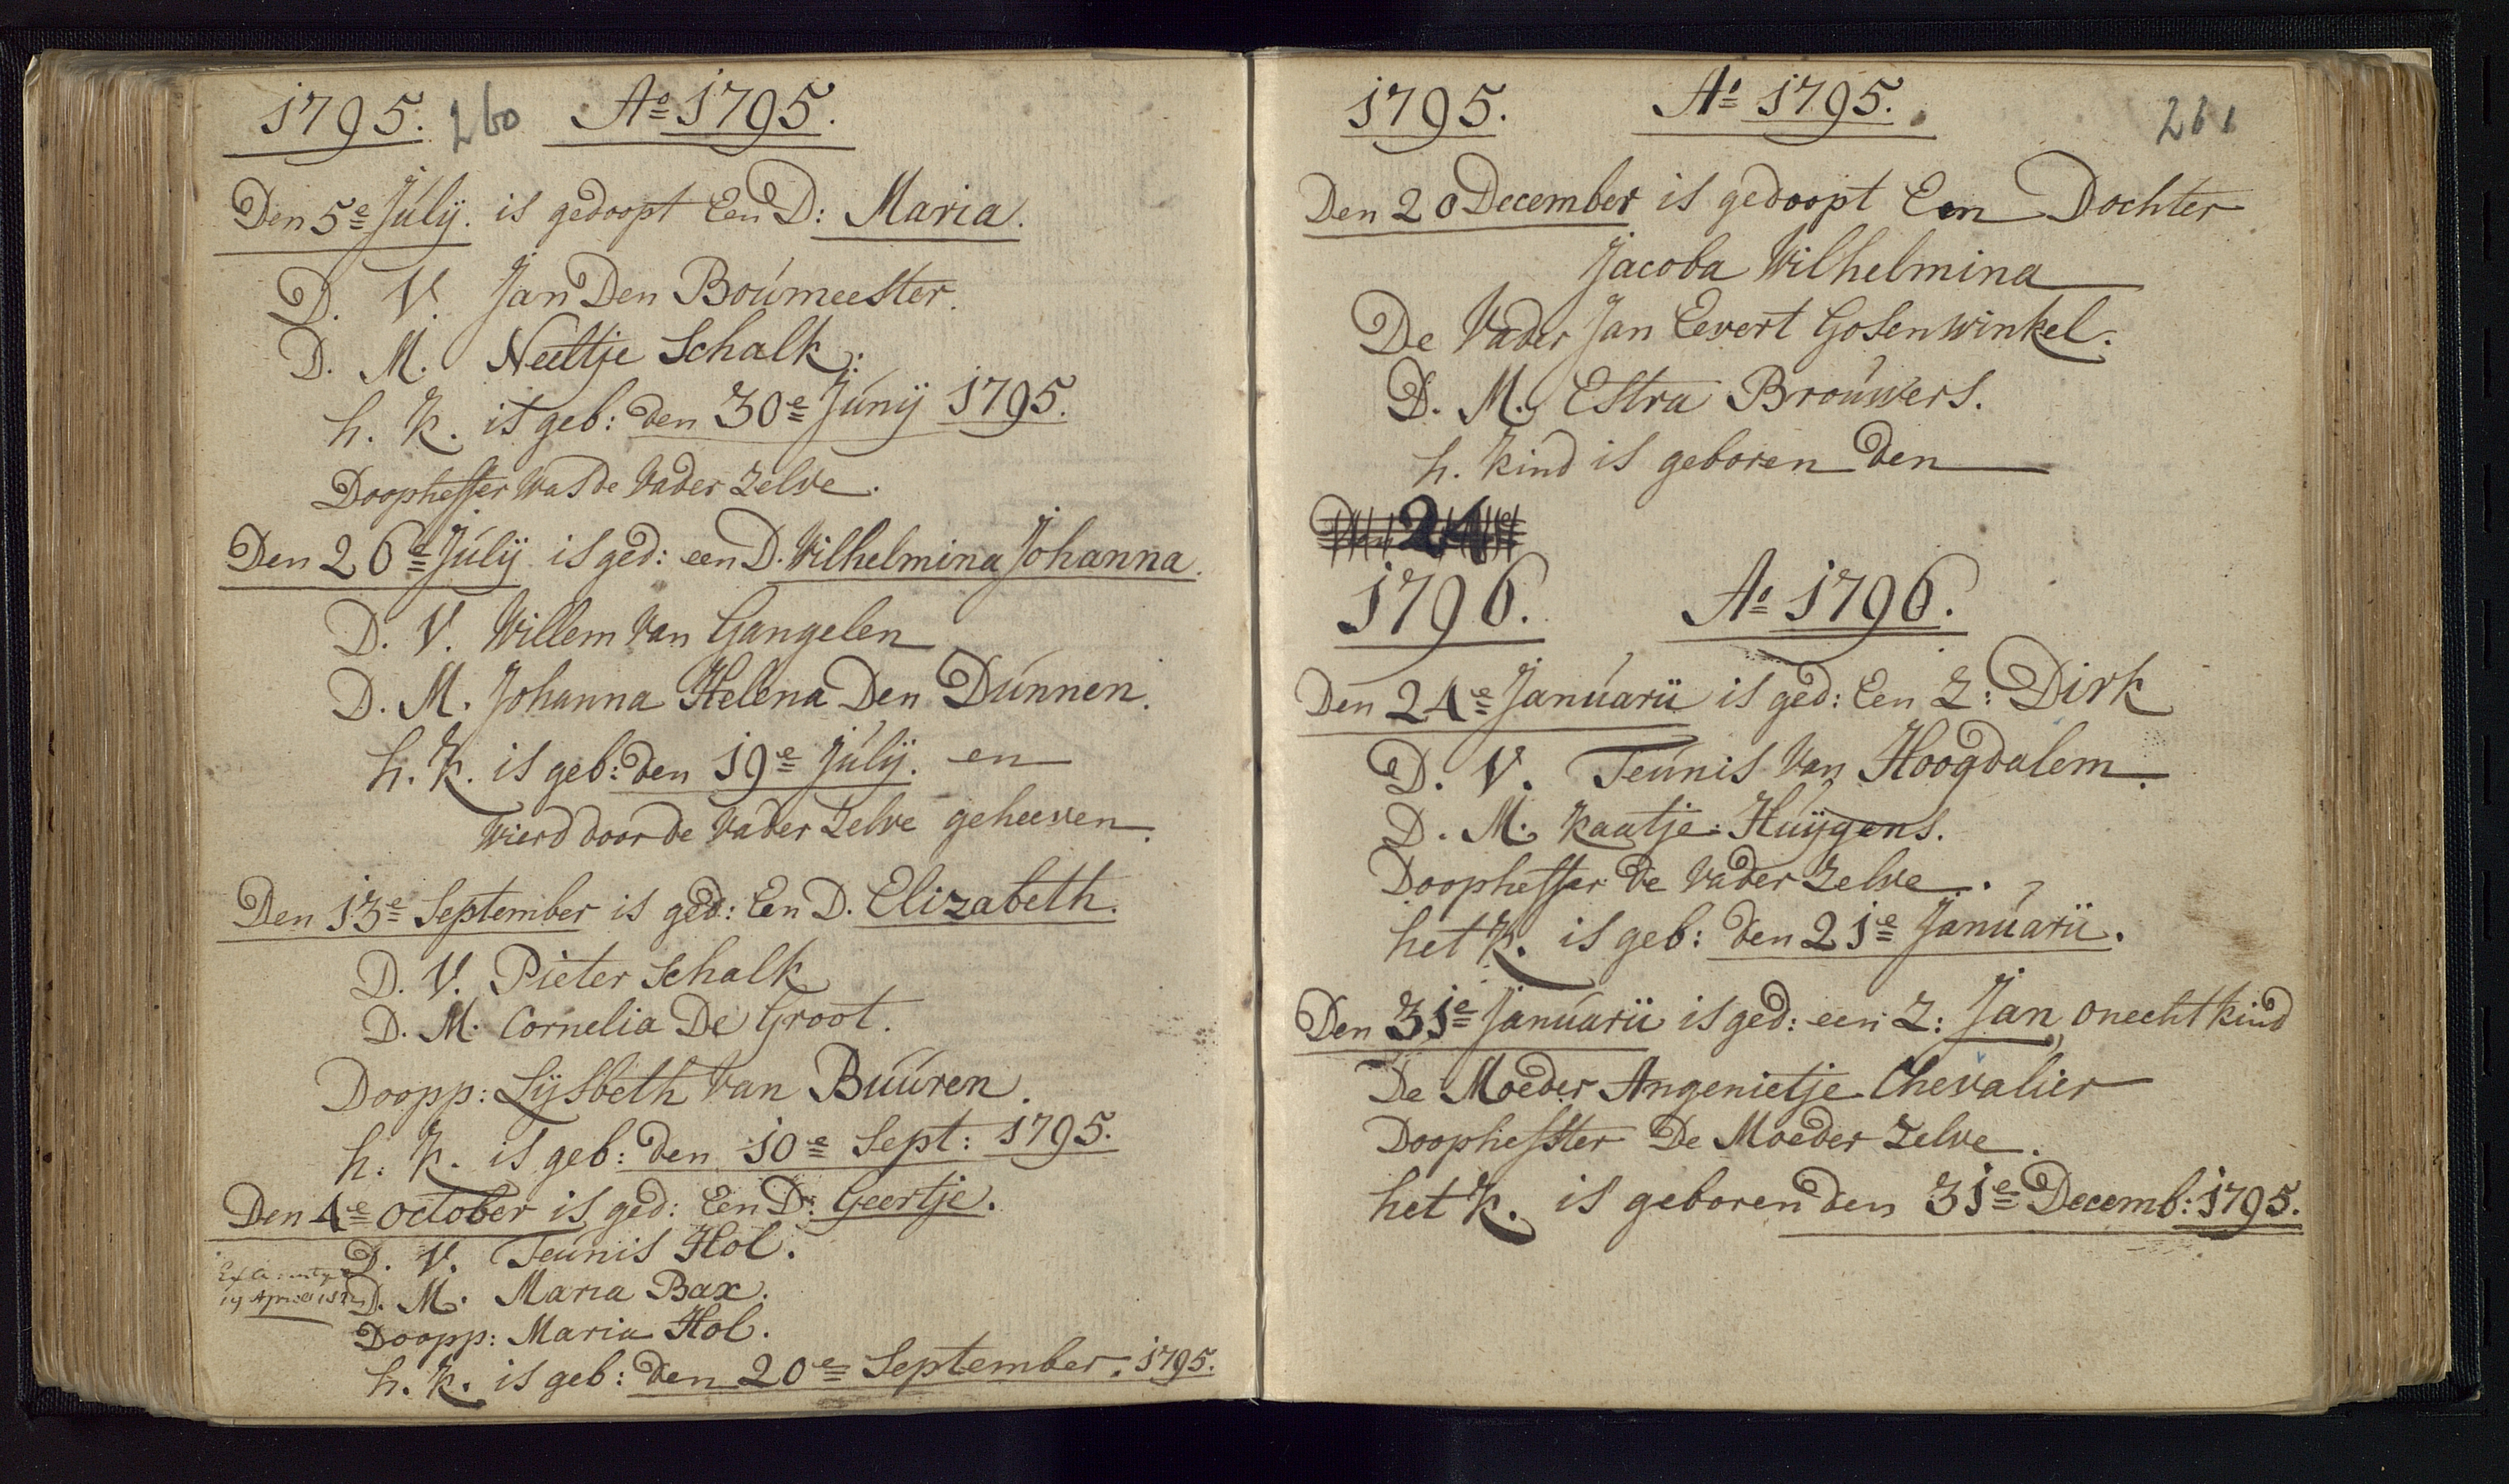 1795. 260 Ao 1795.
Den 5e Júlij. is gedoopt Een D: Maria.
D. V. Jan Den Boúmeester.
D. M. Neeltje Schalk.
h. k. is geb: den 30e Júnij 1795.
Doopheffer was de Vader Zelve.
Den 26e Júlij is ged: een D. Wilhelmina Johanna.
D. V. Willem Van Gangelen
D. M. Johanna Helena Den Dúnnen.
h. k. is geb: den 19e Júlij. en
Wierd door de Vader Zelve geheeven.
Den 13e September is ged: Een D. Elizabeth.
D. V. Pieter Schalk
D. M. Cornelia De Groot.
Doopp: Lijsbeth Van Búúren.
h. k. is geb: den 10e Sept: 1795.
Den 4e October is ged: Een D: Geertje.
D. V. Teúnis Hol.
D. M. Maria Bax.
19 April
Doopp: Maria Hol.
h. k. is geb: den 20e September. 1795.
1795. Ao 1795. 261
Den 20 December is gedoopt Een Dochter
Jacoba Wilhelmina
De Vader Jan Eevert Gosenwinkel.
D. M. Estra Broúwers.
h. kind is geboren den
Den 24e
1796. Ao 1796.
Den 24e Janúarii is ged: Een Z: Dirk
D. V. Teúnis Van Hoogdalem.
D. M. Kaatje Húijgens.
Doopheffer de Vader Zelve.
het k. is geb: den 21e Janúarii.
Den 31e Janúarii is ged: een Z: Jan, onecht kind
De Moeder Angenietje Chevalier
Doophefster De Moeder Zelve.
het k. is geboren den 31e Decemb: 1795.